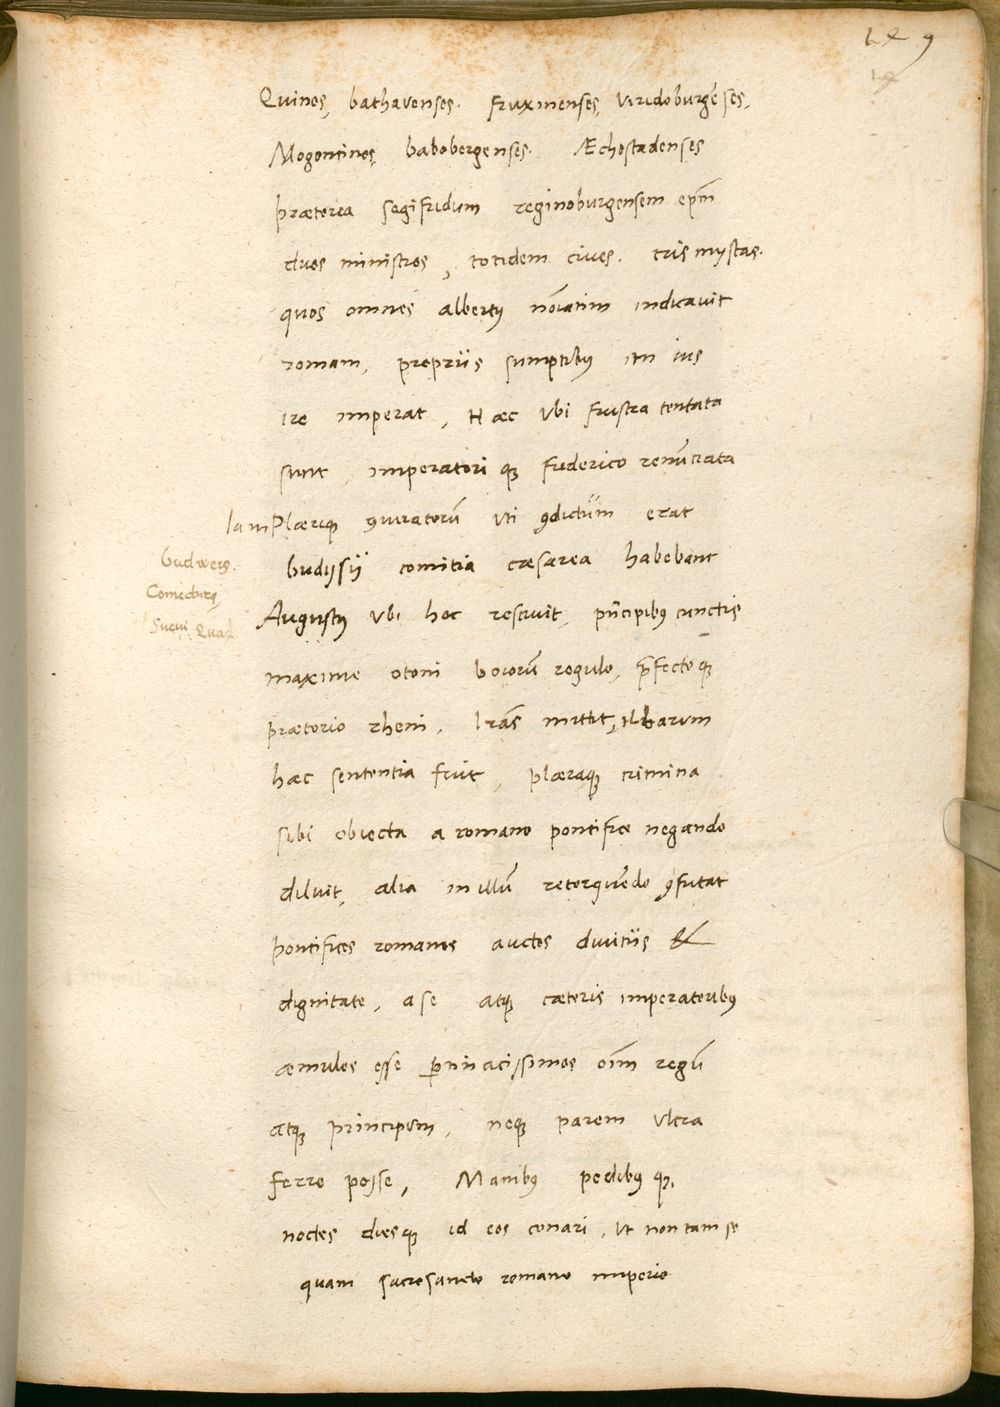 Quinos, bathavenses. fruxinenses, Viridoburgēses,
Mogontinos, babobergenses. Æchostadenses
præterea segifridum reginoburgensem epm̄
duos ministros, totidem ciues. tris mystas.
quos omnes albertꝰ nōiatim indicavit
romam, propriis sumptibꝰ in ius
ire imperat, Hæc Vbi frustra tentata
sunt, imperatori qꝫ friderico renūciata
Iam Plæriqꝫ ꝯiuratorū Vti ꝯdictum erat
budijsij comitia cæsarea habebant
budweis.
Coniecturæ
Sueui Quad
Augustꝰ Vbi hoc resciuit, pn̄cipibꝰ cunctis
maxime otoni boiorū regulo, p̄fectoqꝫ
prætorio rheni, lrās mittit, illarum
hæc sententia fuit, plæraqꝫ crimina
sibi obiecta a romano pontifice negando
diluit, alia in illū retorquēdo ꝯfutat
pontifices romanos auctos diuitiis &
dignitate, a se atqꝫ cæteris imperatoribꝰ
æmulos esse ꝑtinacissimos oīm regū
atqꝫ principum, neqꝫ parem Vltra
ferre posse, Manibꝰ pedibꝰ qꝫ,
noctes diesqꝫ id eos conari, Vt non tam se
quam sacrosancto romano imperio